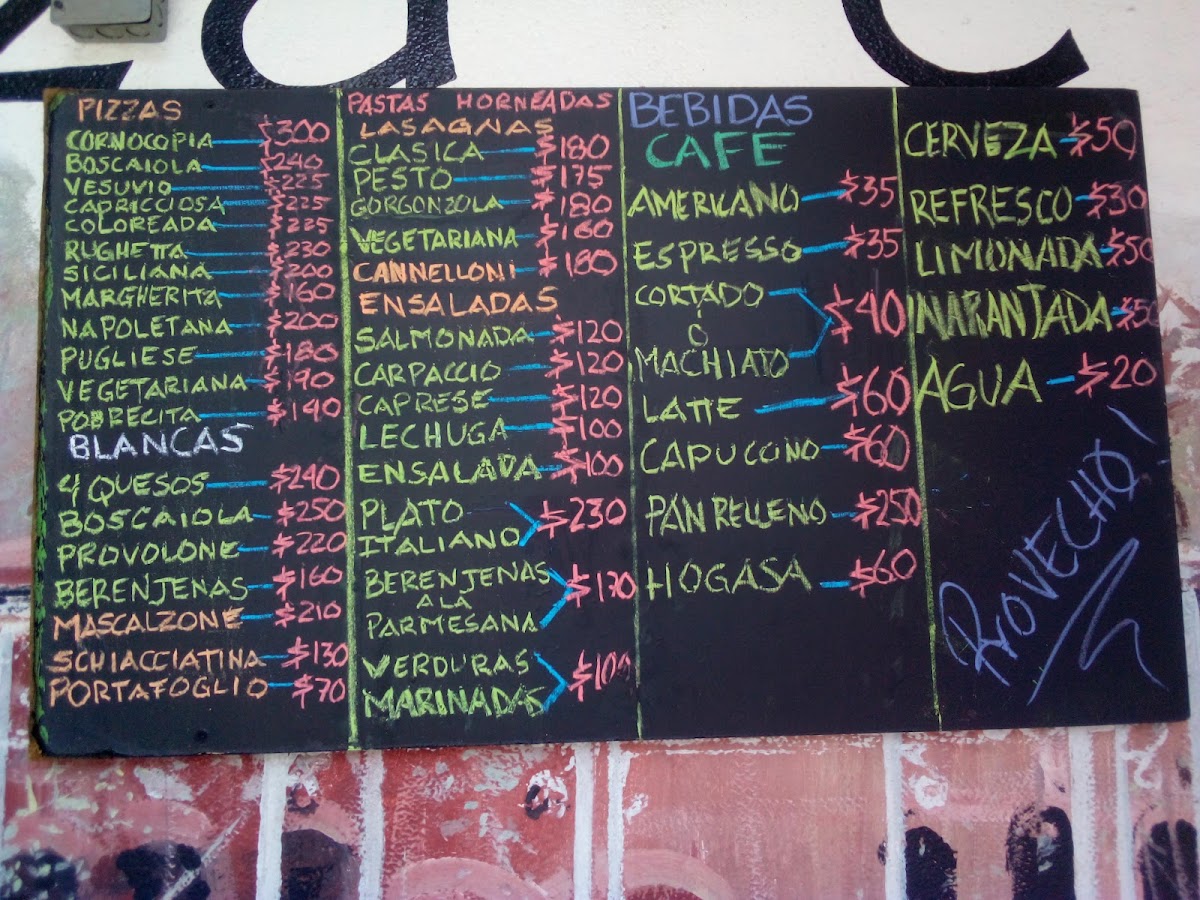 PIZZAS
CORNOCOPIA $300
BOSCAIOLA $240
VESUVIO $225
CAPRICCIOSA $225
COLOREADA $225
RUGHETTA $230
SICILIANA $200
MARGHERITA $160
NAPOLETANA $200
PUGLIESE $180
VEGETARIANA $190
POBRECITA $140
BLANCAS
4 QUESOS $240
BOSCAIOLA $250
PROVOLONE $220
BERENJENAS $160
MASCALZONE $210
SCHIACCIATINA $130
PORTAFOGLIO $70
PASTAS HORNEADAS
LASAGNAS
CLASICA $180
PESTO $175
GORGONZOLA $180
VEGETARIANA $160
CANNELLONI $180
ENSALADAS
SALMONADA $120
CARPACCIO $120
CAPRESE $120
LECHUGA $100
ENSALADA $100
PLATO
ITALIANO $230
BERENJENAS
A LA
PARMESANA $170
VERDURAS
MARINADAS $100
BEBIDAS
CAFE
AMERICANO $35
ESPRESSO $35
CORTADO
Ó
MACHIATO $40
LATTE $60
CAPUCCINO $60
PAN RELLENO $250
HOGASA $60
CERVEZA $50
REFRESCO $30
LIMONADA $50
NARANJADA $50
AGUA $20
PROVECHO!